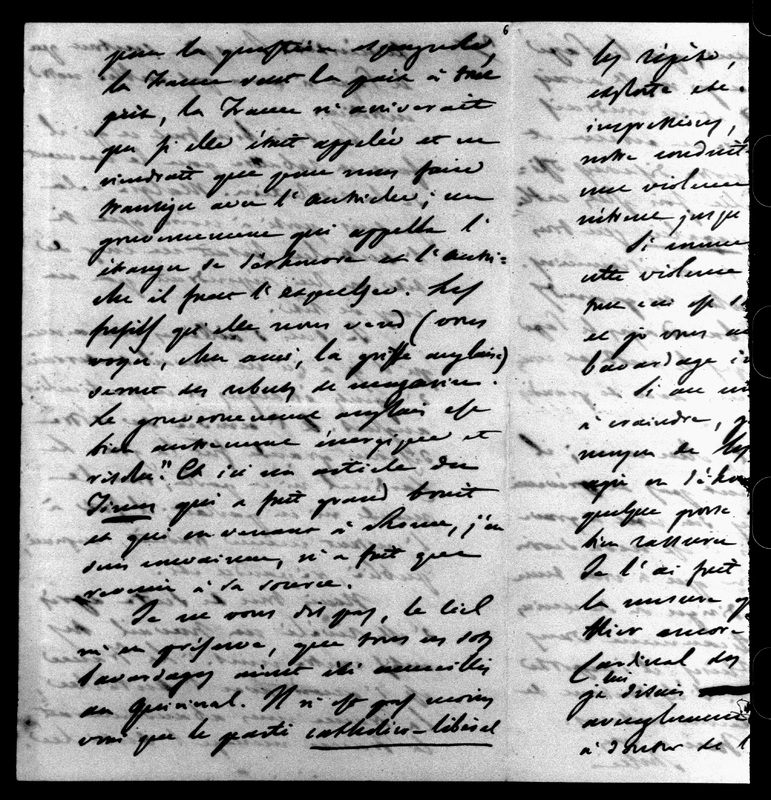 6
pour la question espagnole,
la France veut la paix à tout
prix, la France n'arriverait
que si elle était appelée et ne
viendrait que pour nous faire
transiger avec l'Autriche; un
gouvernement qui appelle l'
étranger se déshonore et l'Autri=
che il faut l'expulser. Les
fusils qu'elle nous vend (vous
voyez, cher ami, la griffe anglaise)
seront des rebuts de magasins.
Le gouvernement anglais est
bien autrement énergique et
résolu." Et ici un article du
Times qui a fait grand bruit
et qui en venant à Rome, j'en
suis convaincu, n'a fait que
revenir à sa source.
Je ne vous dis pas, le Ciel
m'en préserve, que tous ces sots
bavardages aient été accueillis
au Quirinal. Il n'est pas moins
vrai que le parti catholico-libéral
les répète,
exploite
impressions,
notre conduite
une violence
même jusqu
Si comme
cette violence
tout
et je vous
bavardage
Si au
à craindre,
moyen de
agir en
quelque
bien rassurer
Je l'ai fait
la mesure
Hier encore
Cardinal des
lui
je disais
aveuglement
à douter de l